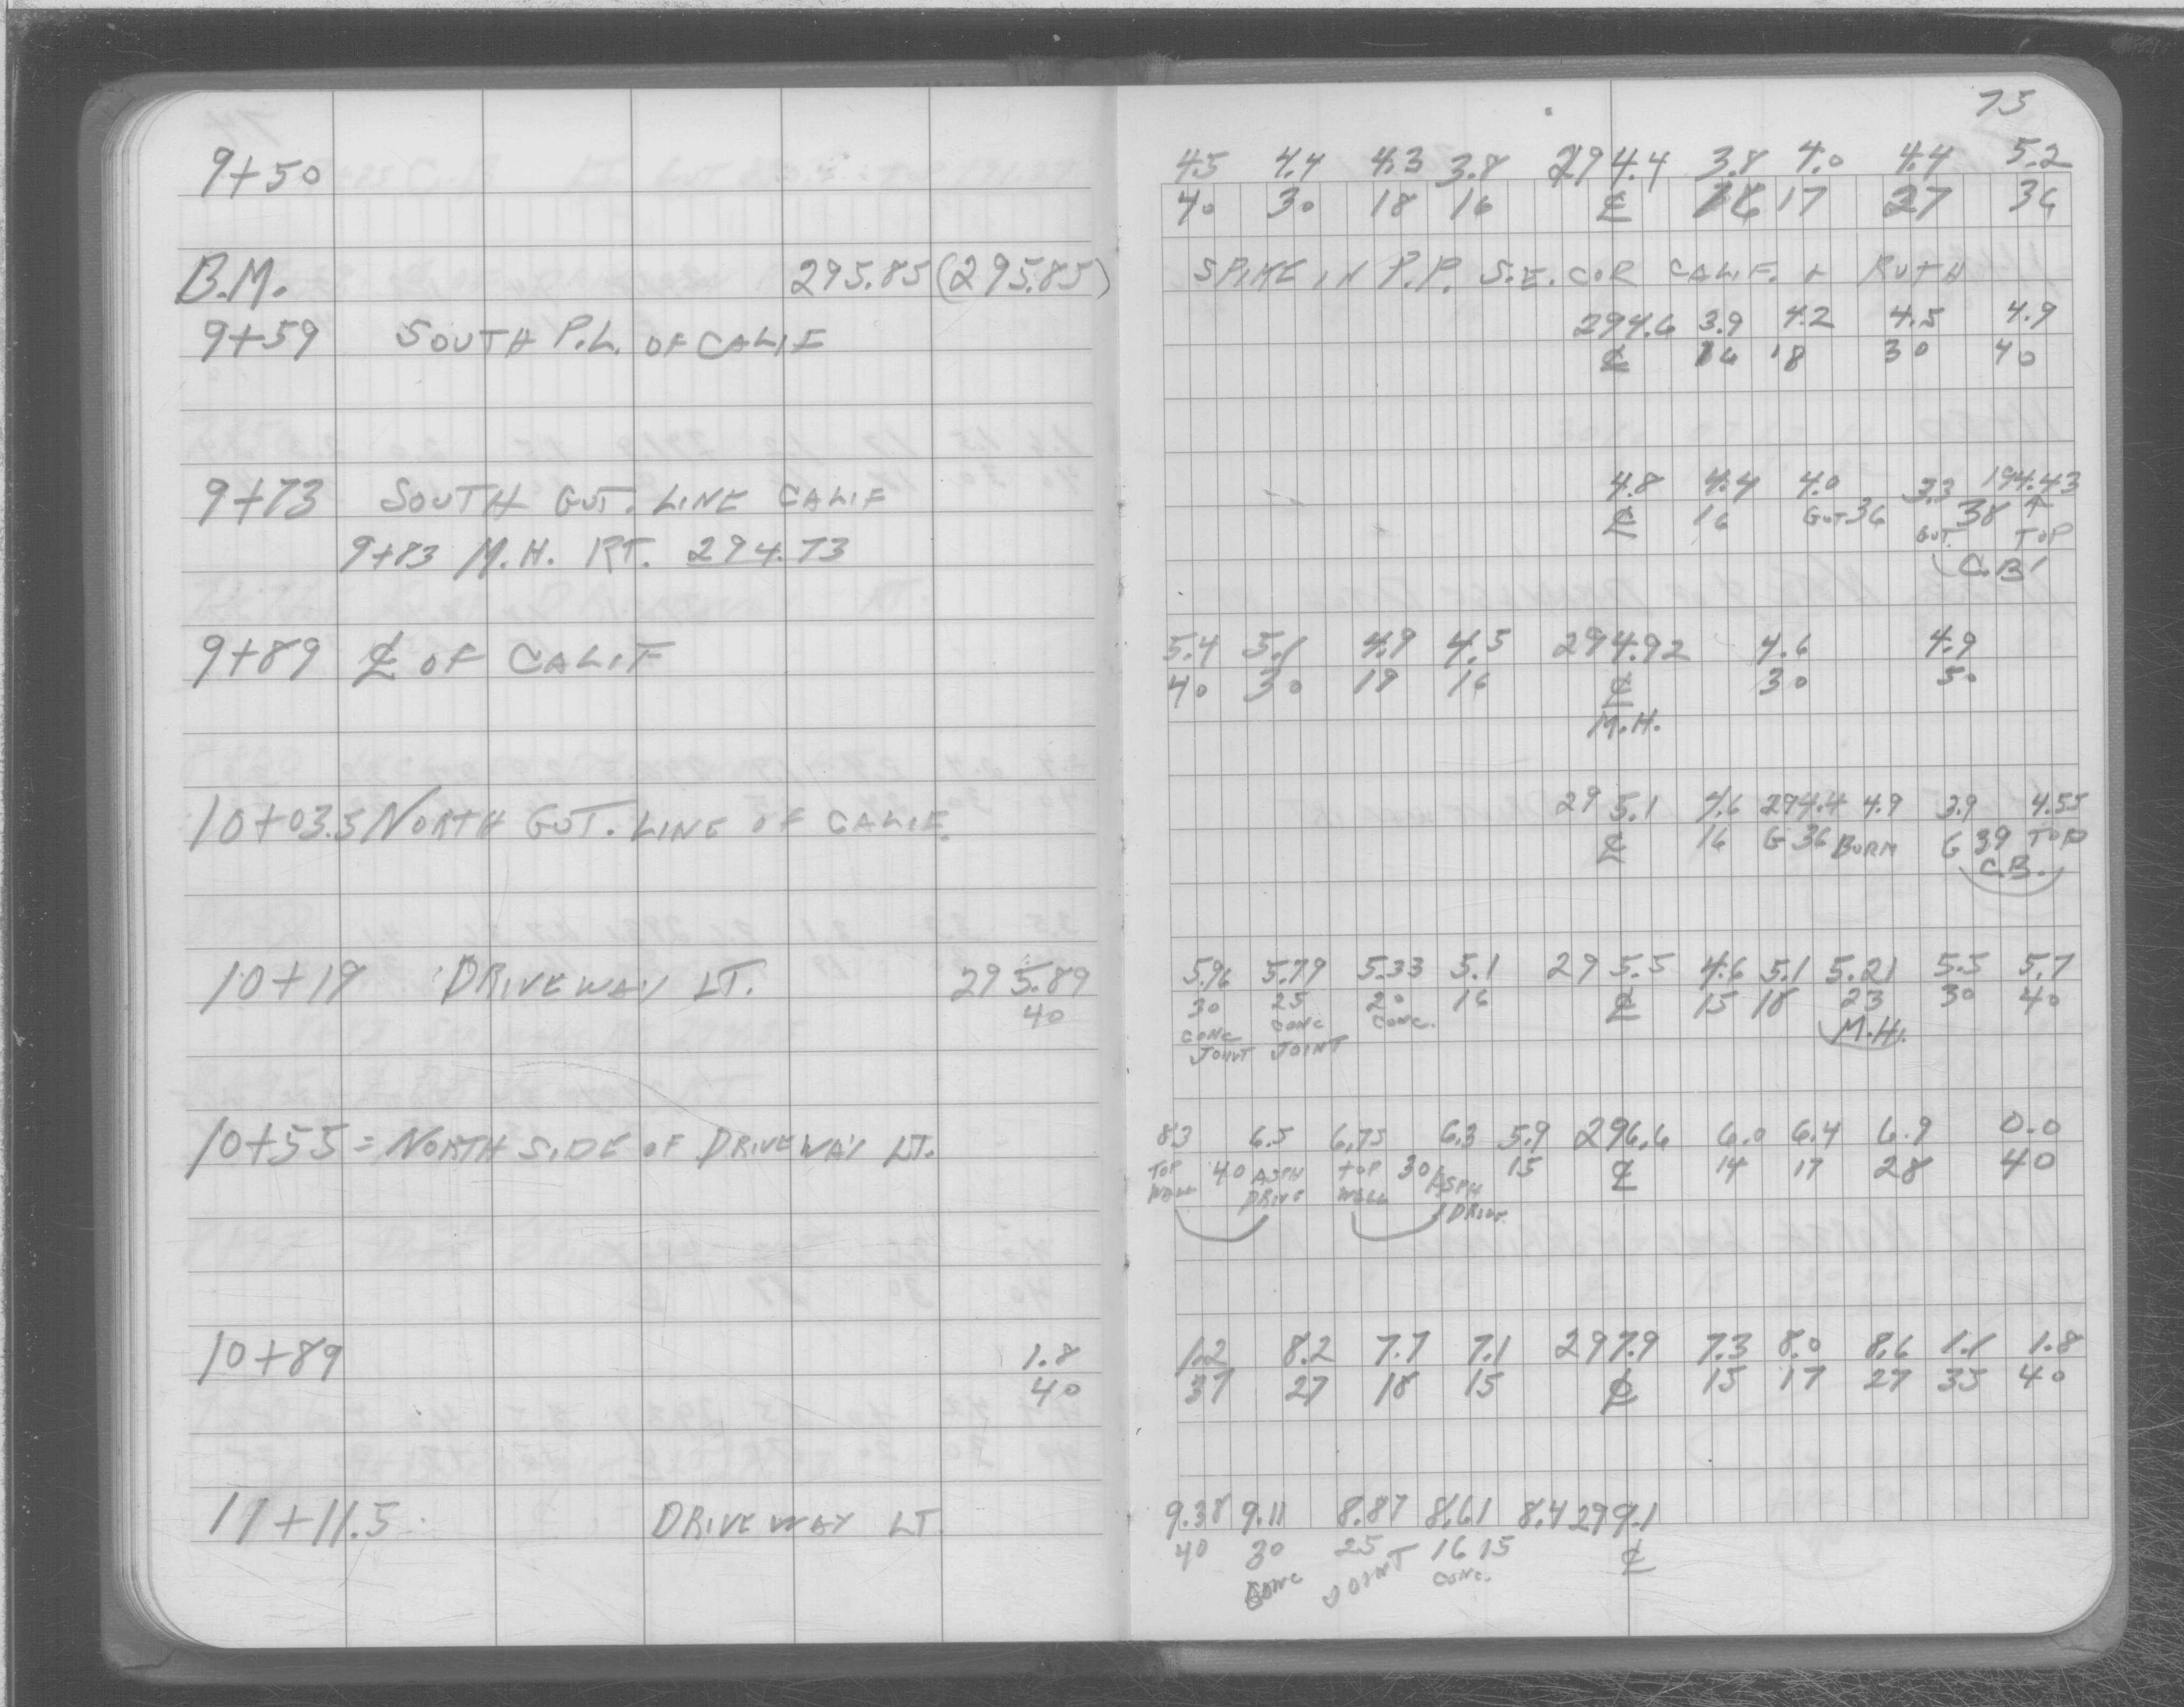 75
9+50 4.5 4.4 4.3 3.8 294.4 3.8 4.0 4.4 5.2
40 30 18 16 ℄ 16 17 27 36
B.M. 295.85 (295.85) SPIKE IN P.P. S.E. COR CALIF. + RUTH
9+59 SOUTH P.L. OF CALIF 294.6 3.9 4.2 4.5 4.9
℄ 16 18 30 40
9+73 SOUTH GUT. LINE CALIF 4.8 4.4 4.0 3.3 194.43
℄ 16 GUT 36 38 ↑
9+83 M.H. RT. 294.73 GUT. TOP
C.B.
9+89 ℄ OF CALIF 5.4 5.1 4.9 4.5 294.92 4.6 4.9
40 30 19 16 ℄ 30 50
M.H.
10+03.5 NORTH GUT. LINE OF CALIF. 295.1 4.6 294.4 4.9 3.9 4.55
℄ 16 G 36 BURM G 39 TOP
C.B.
10+19 DRIVEWAY LT. 295.89 5.96 5.79 5.33 5.1 295.5 4.6 5.1 5.21 5.5 5.7
40 30 25 20 16 ℄ 15 18 23 30 40
CONC CONC CONC. M.H.
JOINT JOINT
10+55 = NORTH SIDE OF DRIVEWAY LT. 8.3 6.5 6.75 6.3 5.9 296.6 6.0 6.4 6.9 0.0
TOP 40 ASPH TOP 30 ASPH 15 ℄ 14 17 28 40
WALL DRIVE WALL DRIVE
10+89 1.8 1.2 8.2 7.7 7.1 297.9 7.3 8.0 8.6 1.1 1.8
40 37 27 18 15 ℄ 15 17 27 35 40
11+11.5 DRIVEWAY LT. 9.38 9.11 8.87 8.61 8.4 299.1
40 30 25 16 15 ℄
CONC JOINT CONC.